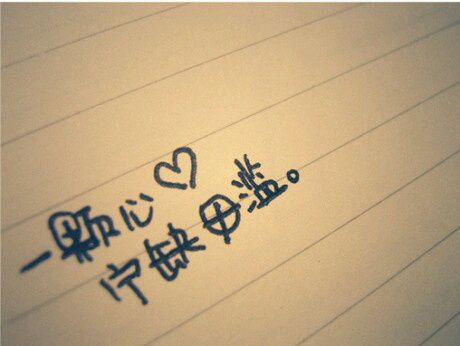 一颗心♡
宁缺毋滥。